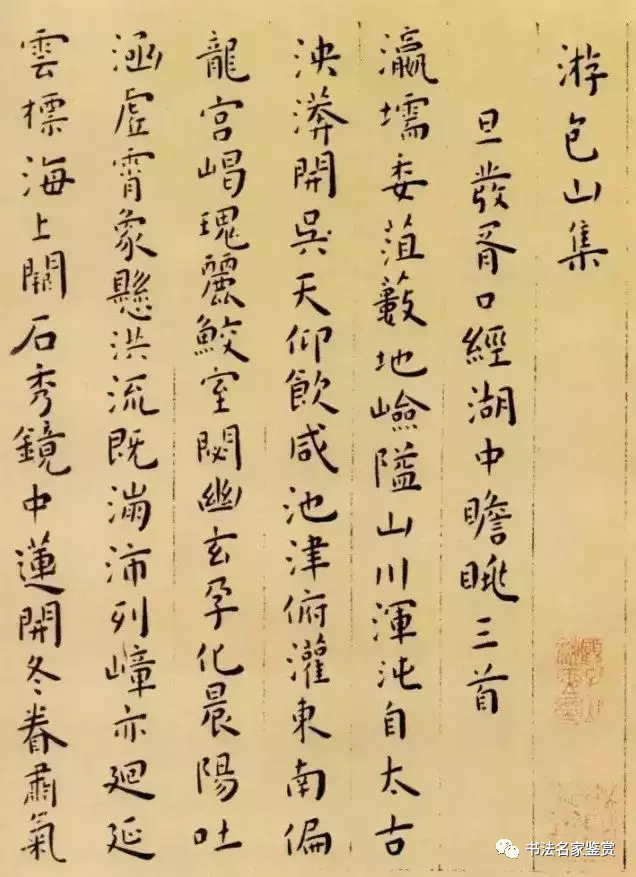 游包山集
旦發胥口經湖中瞻眺三首
瀛壖委菹藪地嶮隘山川渾沌自太古
泱漭開吳天仰飲咸池津俯灌東南偏
龍宮嵑瑰麗鮫室閟幽玄孕化晨陽吐
涵虛霄象懸洪流既滿沛列嶂亦廻延
雲標海上闕石秀鏡中蓮開冬眷肅氣
书法名家鉴赏